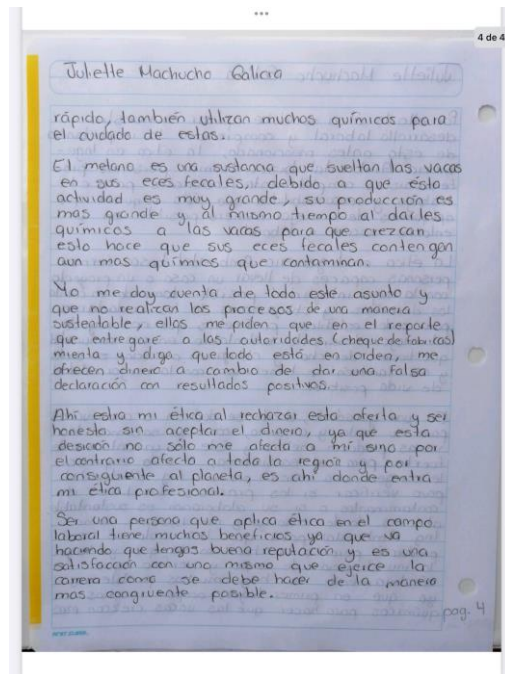 4 de 4
Juliette Machucho Galicia
rápido, también utilizan muchos químicos para
el cuidado de estas.
El metano es una sustancia que sueltan las vacas
en sus eces fecales, debido a que ésta
actividad es muy grande, su producción es
mas grande y al mismo tiempo al darles
químicos a las vacas para que crezcan
esto hace que sus eces fecales contengan
aun mas químicos que contaminan.
Yo me doy cuenta de todo este asunto y
que no realizan los procesos de una manera
sustentable, ellos me piden que en el reporte
que entregare a las autoridades (cheque de fabricas)
mienta y diga que todo está en orden, me
ofrecen dinero a cambio de dar una falsa
declaración con resultados positivos.
Ahí entra mi ética al rechazar esta oferta y ser
honesta sin aceptar el dinero, ya que esta
desición no sólo me afecta a mí sino por
el contrario afecta a toda la región y por
consiguiente al planeta, es ahí donde entra
mi ética profesional.
Ser una persona que aplica ética en el campo
laboral tiene muchos beneficios ya que va
haciendo que tengas buena reputación y es una
satisfacción con uno mismo que ejerce la
carrera como se debe hacer de la manera
mas congruente posible.
pag. 4